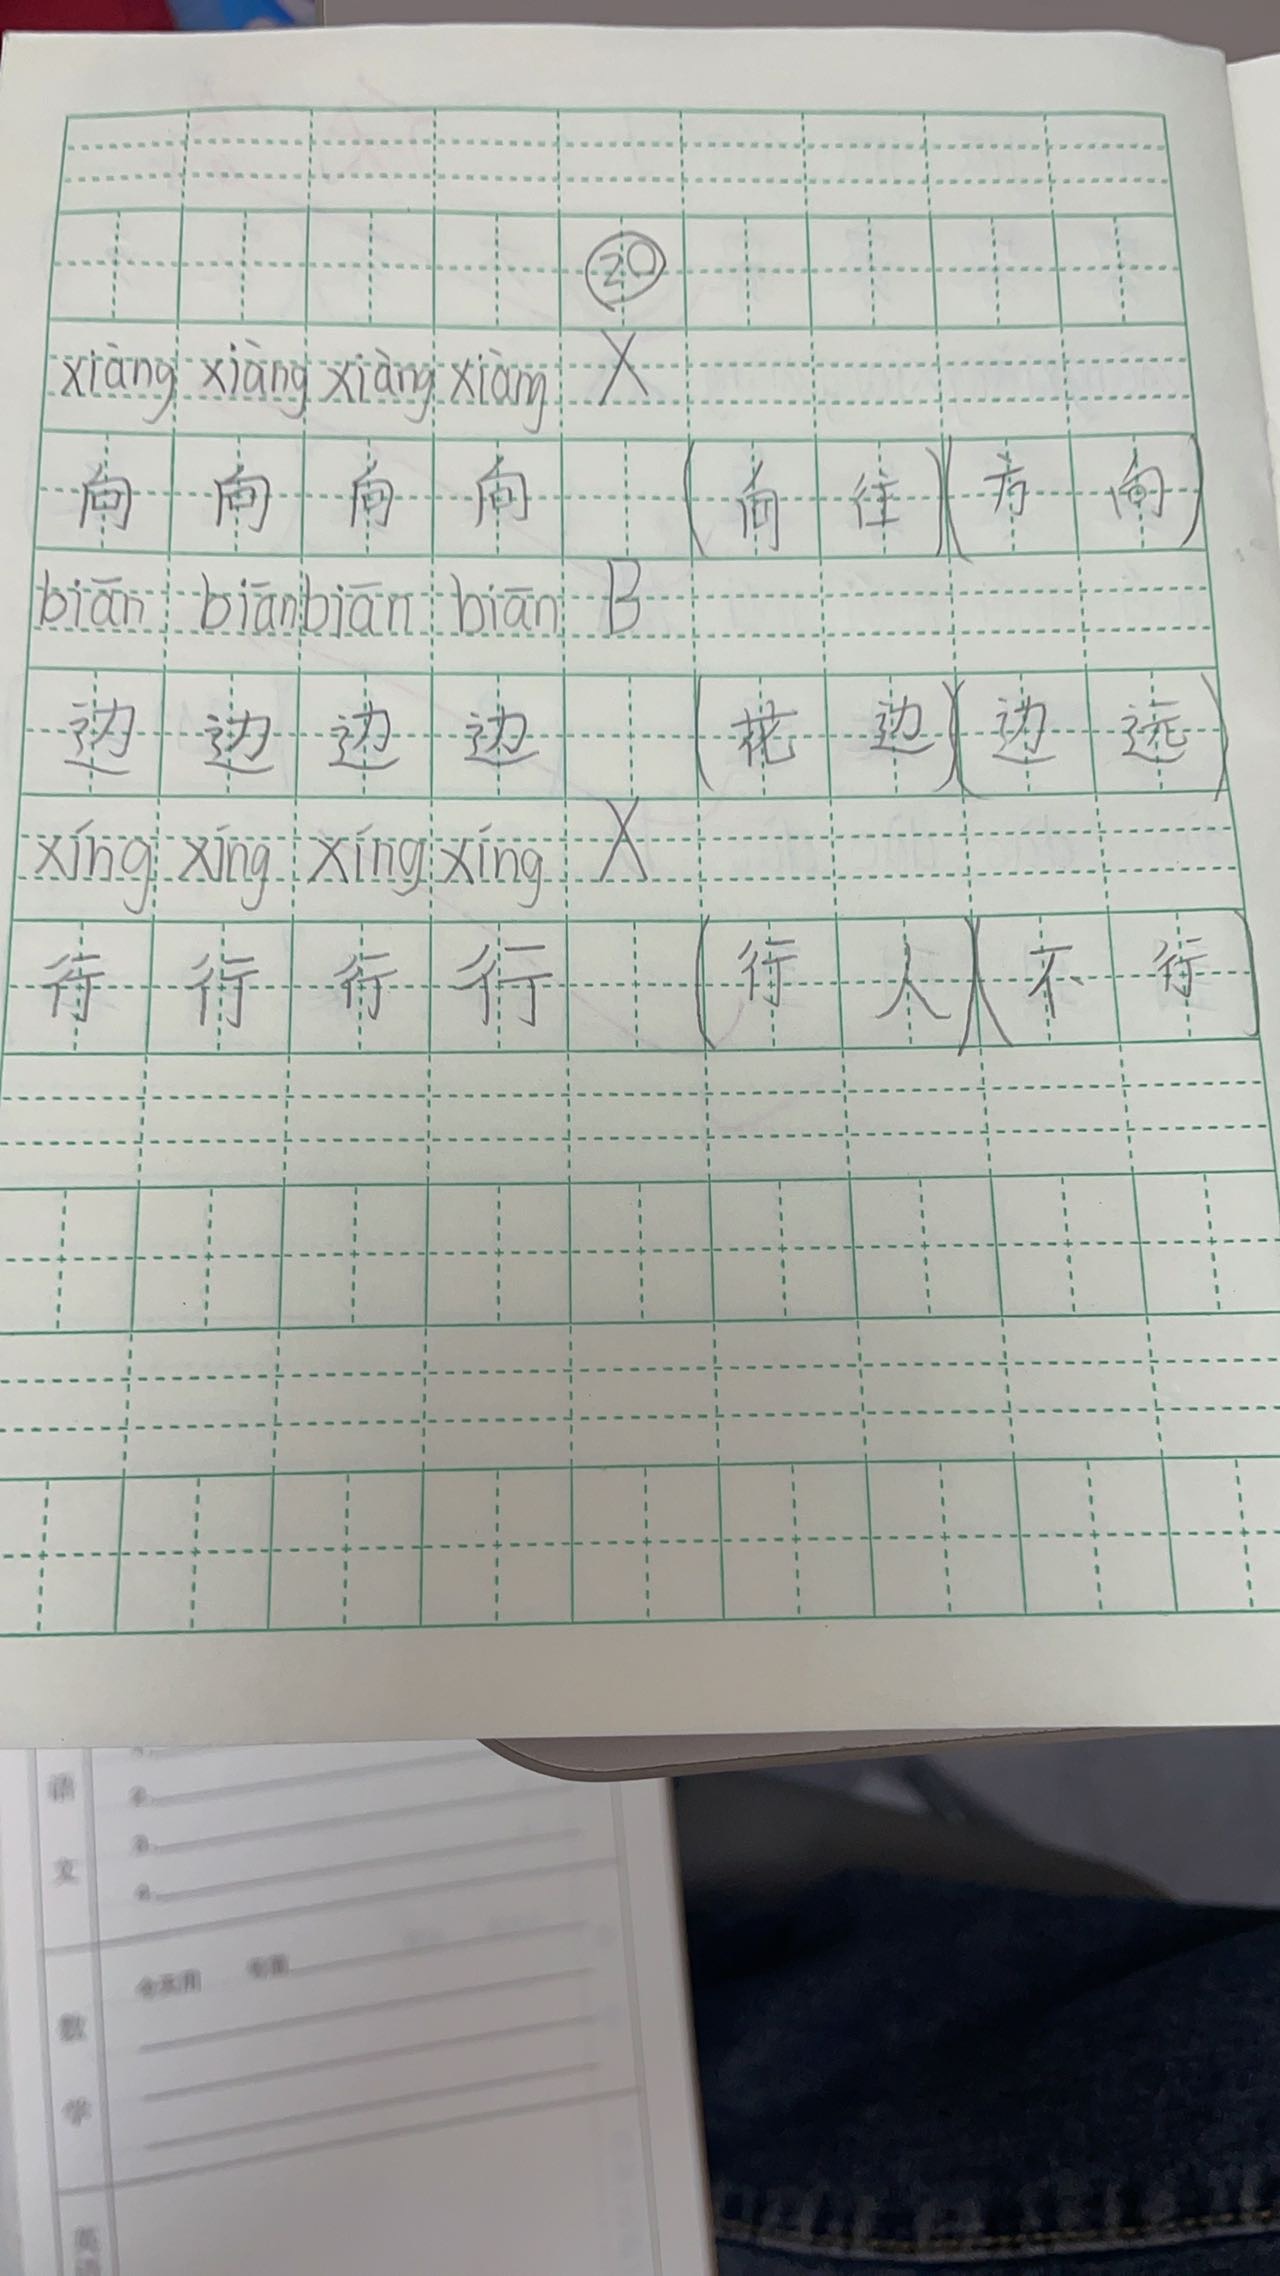 20
xiàng xiàng xiàng xiàng X
向 向 向 向 (向往)(方向)
biān biān biān biān B
边 边 边 边 (花边)(边远)
xíng xíng xíng xíng X
行 行 行 行 (行人)(不行)
语文
数学
英语